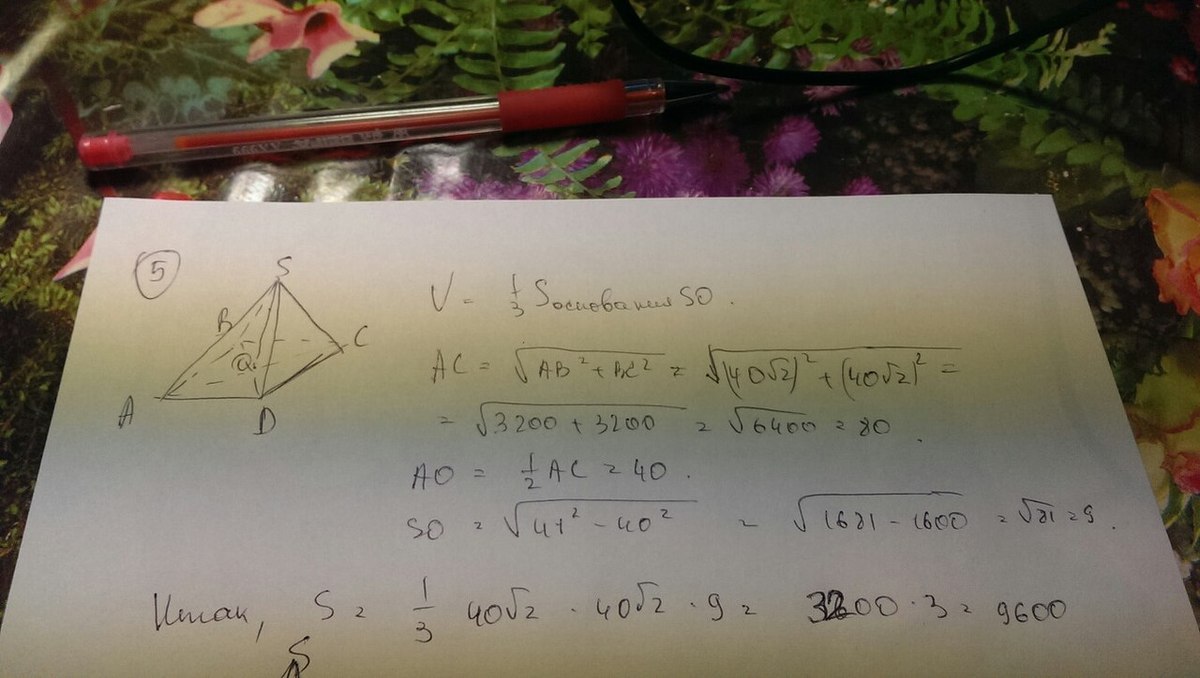 5
S
B
C
O
A
D
V = 1/3 Sоснования SO.
AC = √(AB² + BC²) = √((40√2)² + (40√2)²) =
= √(3200 + 3200) = √6400 = 80.
AO = 1/2 AC = 40.
SO = √(41² - 40²) = √(1681 - 1600) = √81 = 9.
Итак, S = 1/3 40√2 · 40√2 · 9 = 3200 · 3 = 9600
S